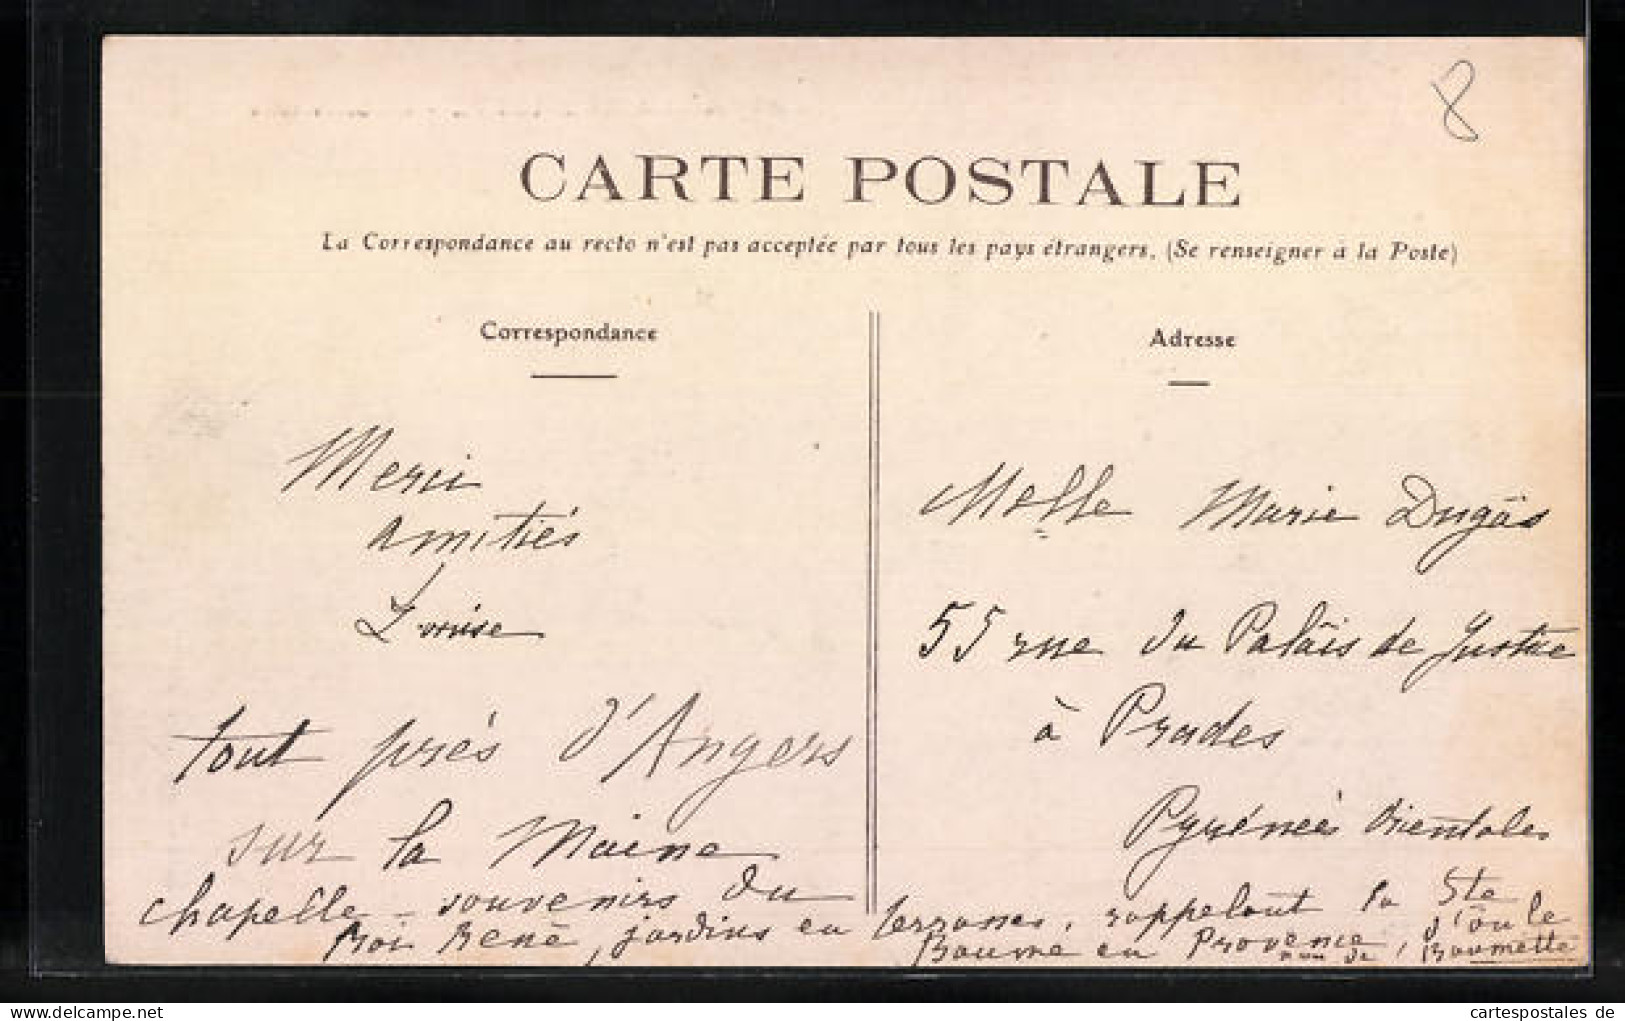 8
CARTE POSTALE
La Correspondance au recto n'est pas acceptée par tous les pays étrangers. (Se renseigner à la Poste)
Correspondance
Merci
amitiés
Louise
tout près d'Angers
sur la Maine
chapelle - souvenirs du
Roi René, jardins en terrasses, rappelant la Ste
Baume en Provence, d'où le
nom de Baumette
Adresse
Melle Marie Dugäs
55 rue du Palais de Justice
à Prades
Pyrénées Orientales
cartespostales de
www.delcampe.net